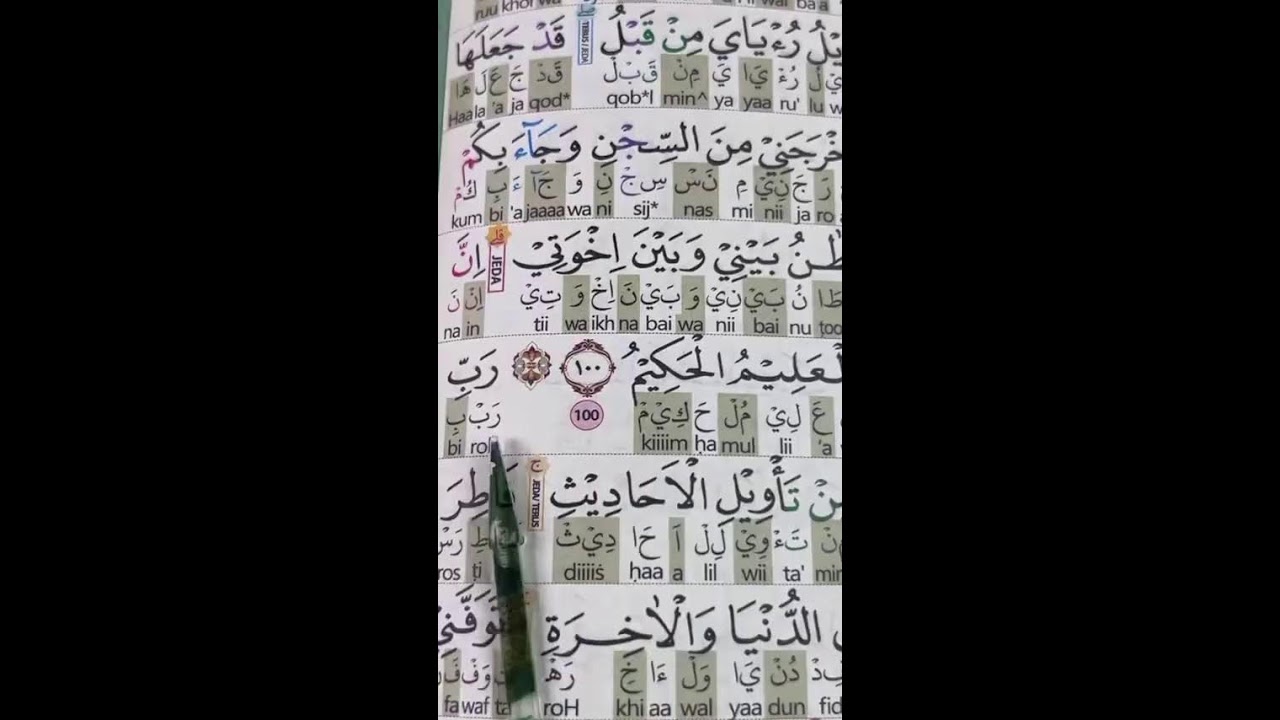 ruu khol wa
رُءْيَايَ مِنْ قَبْلُ قَدْ جَعَلَهَا
TERUS / JEDA
يْ لُ رُءْ يَا يَ مِنْ قَ بْ لُ قَدْ جَ عَ لَ هَا
Haa la 'a ja qod* qob*l min^ ya yaa ru' lu w
خْرَجَنِيْ مِنَ السِّجْنِ وَجَآءَ بِكُمْ
رَ جَ نِيْ مِ نَسْ سِجْ نِ وَ جَآ ءَ بِ كُمْ
kum bi 'a jaaaa wa ni sij* nas mi nii ja ro
طٰنُ بَيْنِيْ وَبَيْنَ اِخْوَتِيْ اِنَّ
قلى
JEDA
طَا نُ بَيْ نِيْ وَ بَيْ نَ اِخْ وَ تِيْ اِنْ نَ
na in tii wa ikh na bai wa nii bai nu ṭoo
لْعَلِيْمُ الْحَكِيْمُ ١٠٠ رَبِّ
عَ لِيْ مُلْ حَ كِيْمْ 100 رَبْ بِ
bi rob kiiiim ḥa mul lii 'a
مِنْ تَأْوِيْلِ الْاَحَادِيْثِ فَاطِرَ
ج
JEDA/ TERUS
مِنْ تَءْ وِيْ لِلْ اَ حَا دِيْثْ طِ رَسْ
ros ṭi diiiiṡ ḥaa a lil wii ta' min
الدُّنْيَا وَالْاٰخِرَةِ تَوَفَّنِيْ
فِدْ دُنْ يَا وَلْ ءَا خِ رَهْ تَ وَفْ فَ
fa waf ta roH khi aa wal yaa dun fid